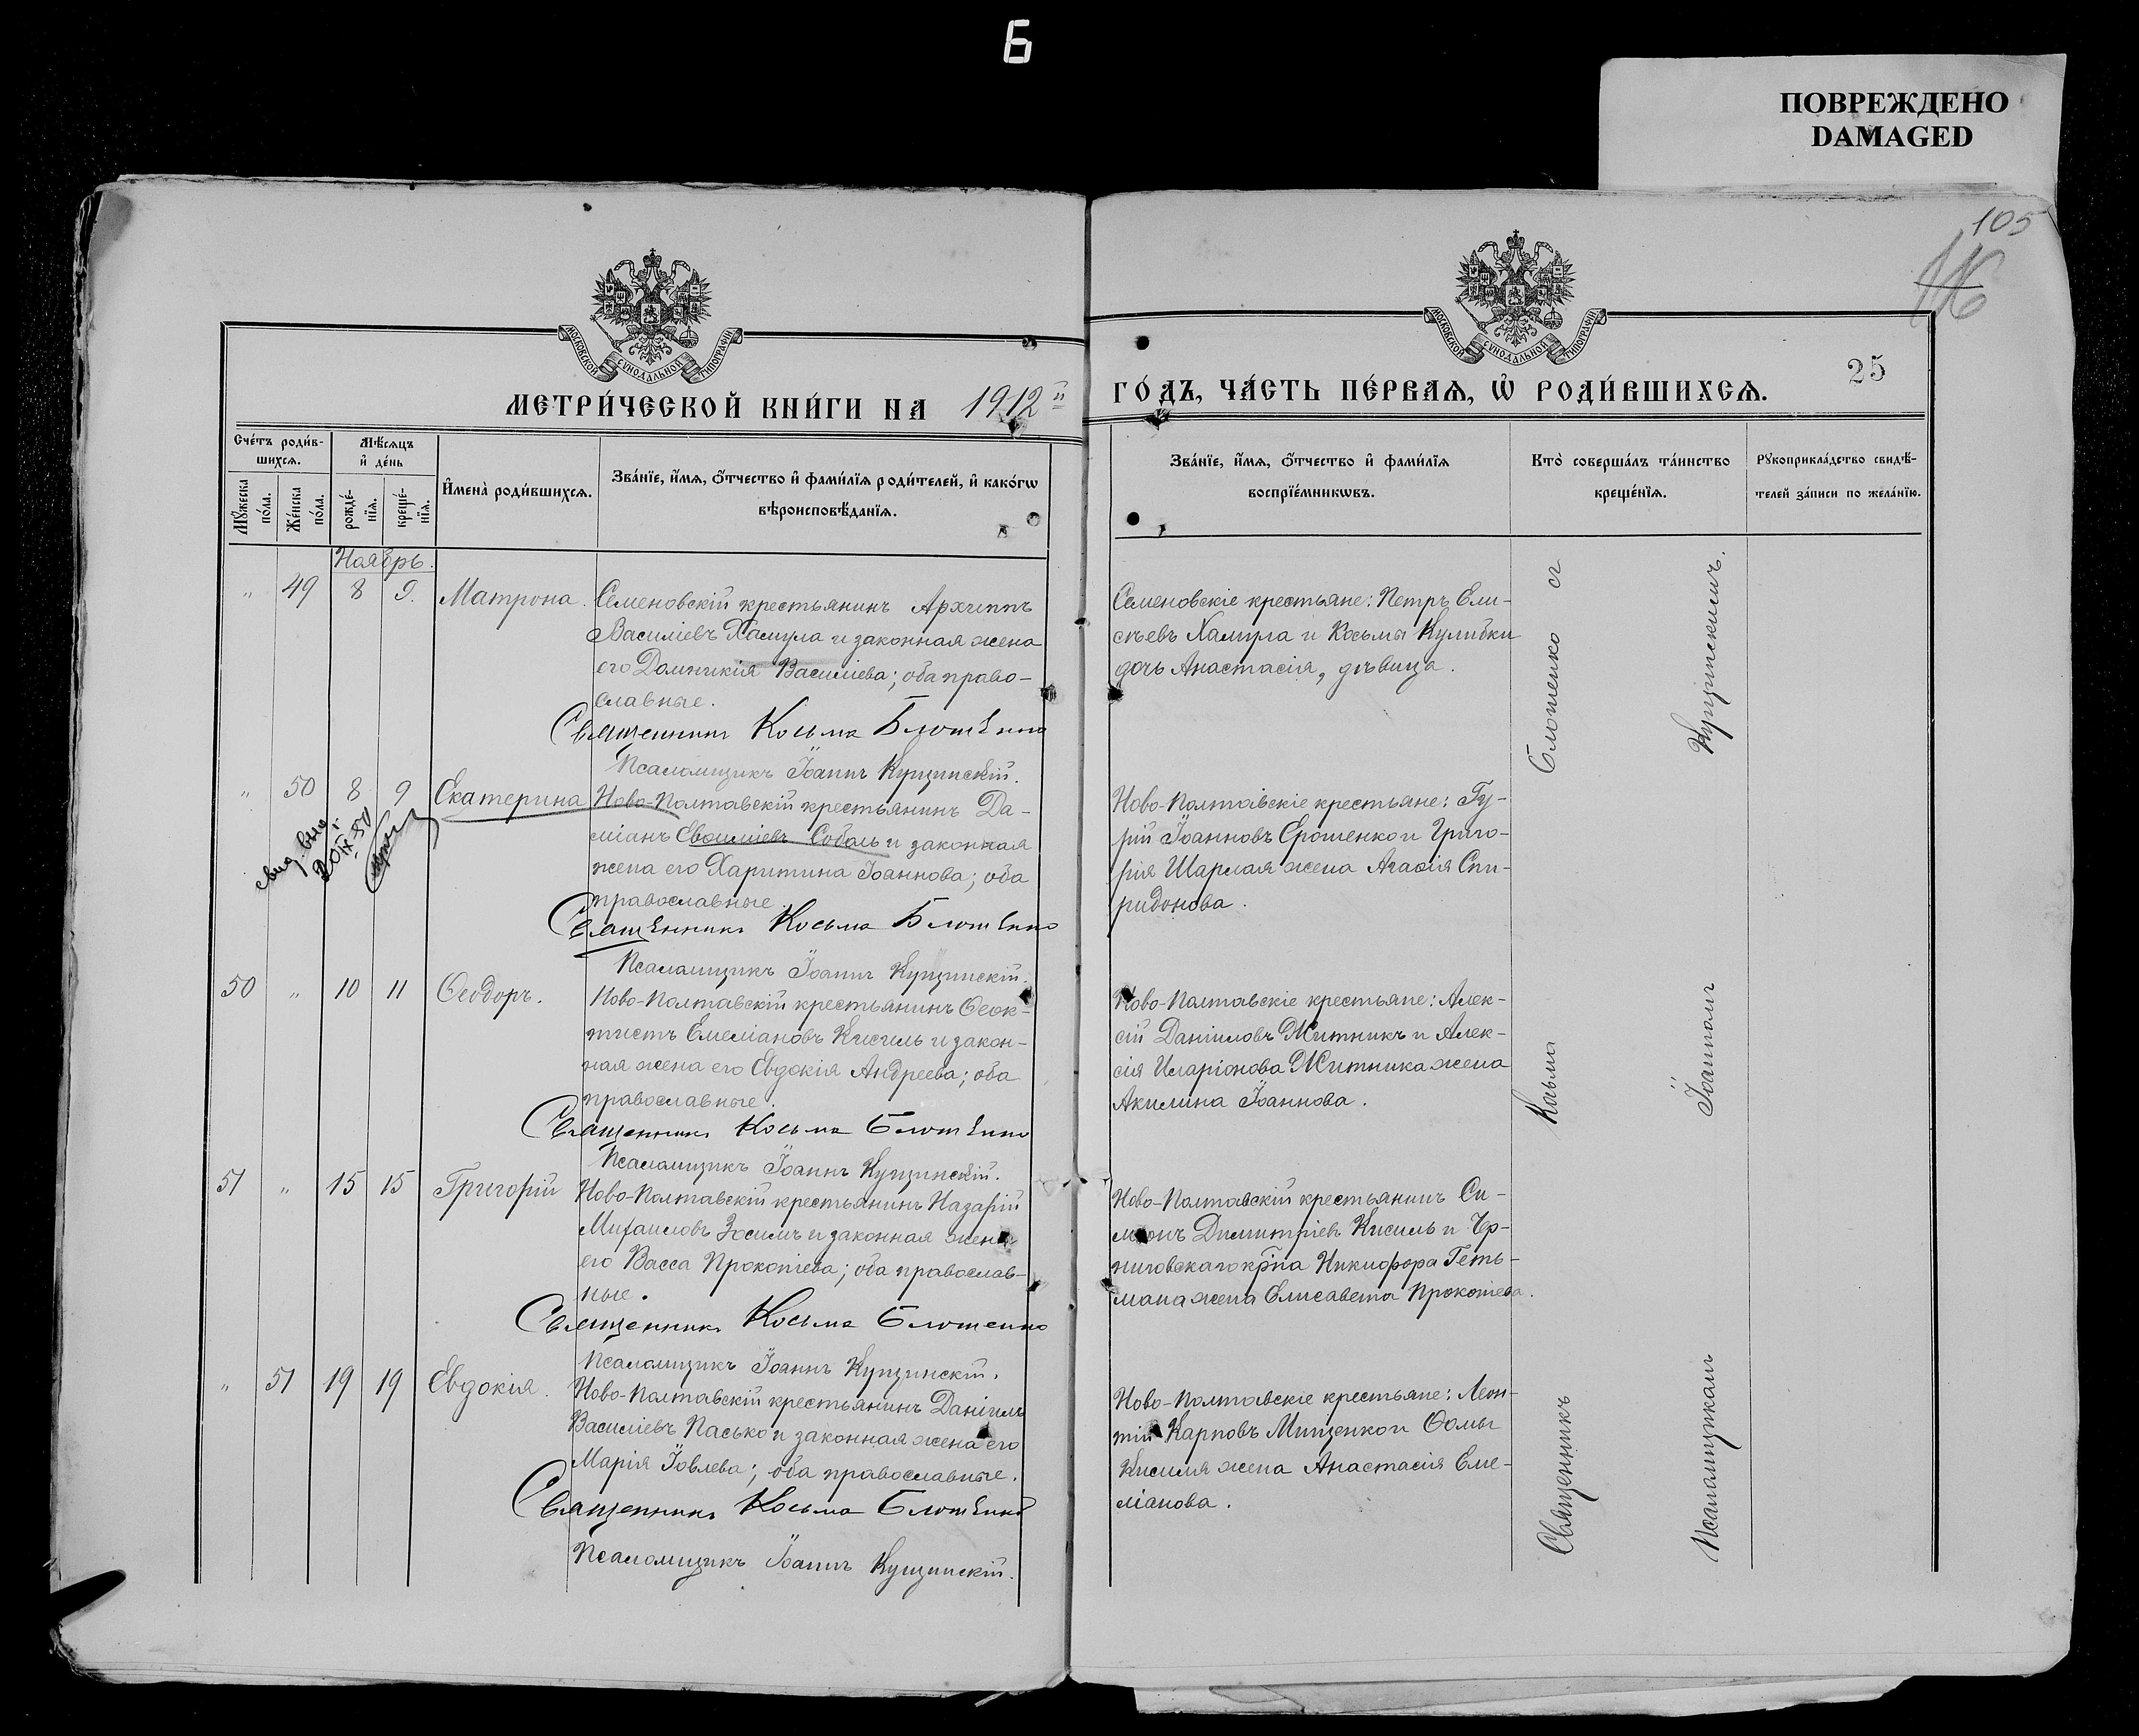 Б
ПОВРЕЖДЕНО
DAMAGED
105
25
МОСКОВСКОЙ СУНОДАЛЬНОЙ ТИПОГРАФІИ
МОСКОВСКОЙ СУНОДАЛЬНОЙ ТИПОГРАФІИ
МЕТРИ́ЧЕСКОЙ КНИ́ГИ НА 1912й
ГО́ДЪ, ЧА́СТЬ ПЕ́РВАѦ, Ѡ҆ РОДИ́ВШИХСѦ.
Сче́тъ роди́в-
шихсѧ.
Мѣ́сѧцъ
и҆ де́нь
Мꙋ́жеска
по́ла.
Же́нска
по́ла.
рожде́-
нїѧ.
креще́-
нїѧ.
И҆мена̀ роди́вшихсѧ.
Зва́нїе, и҆́мѧ, ѻ҆́тчество и҆ фами́лїѧ роди́телей, и҆ како́гѡ
вѣроисповѣ́данїѧ.
Зва́нїе, и҆́мѧ, ѻ҆́тчество и҆ фами́лїѧ
воспрїе́мникѡвъ.
Кто̀ соверша́лъ та́инство
креще́нїѧ.
Рꙋкоприкла́дство свидѣ́-
телей за́писи по жела́нїю.
Ноябрь.
" 49 8 9. Матрона. Семеновскій крестьянинъ Архиппъ
Василіевъ Хамула и законная жена
его Домникія Василіева; оба право-
славные.
Священникъ Косьма Блошенко
Псаломщикъ Іоаннъ Кущинскій.
Семеновскіе крестьяне: Петръ Ели-
сѣевъ Хамула и Косьмы Кулибки
дочь Анастасія, дѣвица.
" 50 8 9 Екатерина Ново-Полтавскій крестьянинъ Да-
міанъ Евсиміевъ Соболь и законная
жена его Харитина Іоаннова; оба
православные.
Священникъ Косьма Блошенко
Псаломщикъ Іоаннъ Кущинскій.
свид. выд.
Ново-Полтавскіе крестьяне: Гу-
рій Іоанновъ Ерошенко и Григо-
рія Шармая жена Агафія Спи-
ридонова.
50 " 10 11 Ѳеодоръ. Ново-Полтавскій крестьянинъ Ѳеок-
тистъ Емеліановъ Кисиль и закон-
ная жена его Евдокія Андреева; оба
православные.
Священникъ Косьма Блошенко
Псаломщикъ Іоаннъ Кущинскій.
Ново-Полтавскіе крестьяне: Алек-
сій Даніиловъ Житникъ и Алек-
сія Иларіонова Житника жена
Акилина Іоаннова.
51 " 15 15 Григорій Ново-Полтавскій крестьянинъ Назарій
Михаиловъ Зосимъ и законная жена
его Васса Прокопіева; оба православ-
ные.
Священникъ Косьма Блошенко
Псаломщикъ Іоаннъ Кущинскій.
Ново-Полтавскій крестьянинъ Си-
меонъ Димитріевъ Кисиль и Чер-
ниговскаго кр-на Никифора Геть-
мана жена Елисавета Прокопіева.
" 51 19 19 Евдокія. Ново-Полтавскій крестьянинъ Даніилъ
Василіевъ Пасько и законная жена его
Марія Іовлева; оба православные.
Священникъ Косьма Блошенко
Псаломщикъ Іоаннъ Кущинскій.
Ново-Полтавскіе крестьяне: Леон-
тій Карповъ Мищенко и Ѳомы
Кисиля жена Анастасія Еме-
ліанова.
Священникъ Косьма Блошенко съ
Псаломщикомъ Іоанномъ Кущинскимъ.